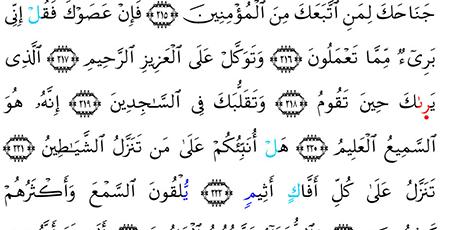 جَنَاحَكَ لِمَنِ ٱتَّبَعَكَ مِنَ ٱلْمُؤْمِنِينَ ﴿٢١٥﴾ فَإِنْ عَصَوْكَ فَقُلْ إِنِّي
بَرِيٓءٌ مِّمَّا تَعْمَلُونَ ﴿٢١٦﴾ وَتَوَكَّلْ عَلَى ٱلْعَزِيزِ ٱلرَّحِيمِ ﴿٢١٧﴾ ٱلَّذِي
يَرَىٰكَ حِينَ تَقُومُ ﴿٢١٨﴾ وَتَقَلُّبَكَ فِي ٱلسَّٰجِدِينَ ﴿٢١٩﴾ إِنَّهُۥ هُوَ
ٱلسَّمِيعُ ٱلْعَلِيمُ ﴿٢٢٠﴾ هَلْ أُنَبِّئُكُمْ عَلَىٰ مَن تَنَزَّلُ ٱلشَّيَٰطِينُ ﴿٢٢١﴾
تَنَزَّلُ عَلَىٰ كُلِّ أَفَّاكٍ أَثِيمٍ ﴿٢٢٢﴾ يُلْقُونَ ٱلسَّمْعَ وَأَكْثَرُهُمْ